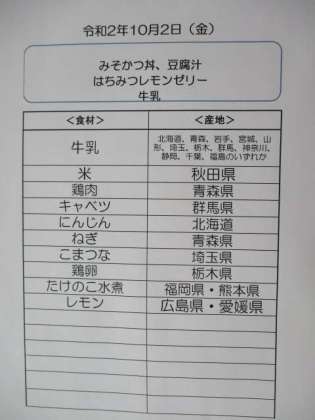 令和2年10月2日（金）
みそかつ丼、豆腐汁
はちみつレモンゼリー
牛乳
＜食材＞ ＜産地＞
牛乳 北海道、青森、岩手、宮城、山
形、埼玉、栃木、群馬、神奈川、
静岡、千葉、福島のいずれか
米 秋田県
鶏肉 青森県
キャベツ 群馬県
にんじん 北海道
ねぎ 青森県
こまつな 埼玉県
鶏卵 栃木県
たけのこ水煮 福岡県・熊本県
レモン 広島県・愛媛県